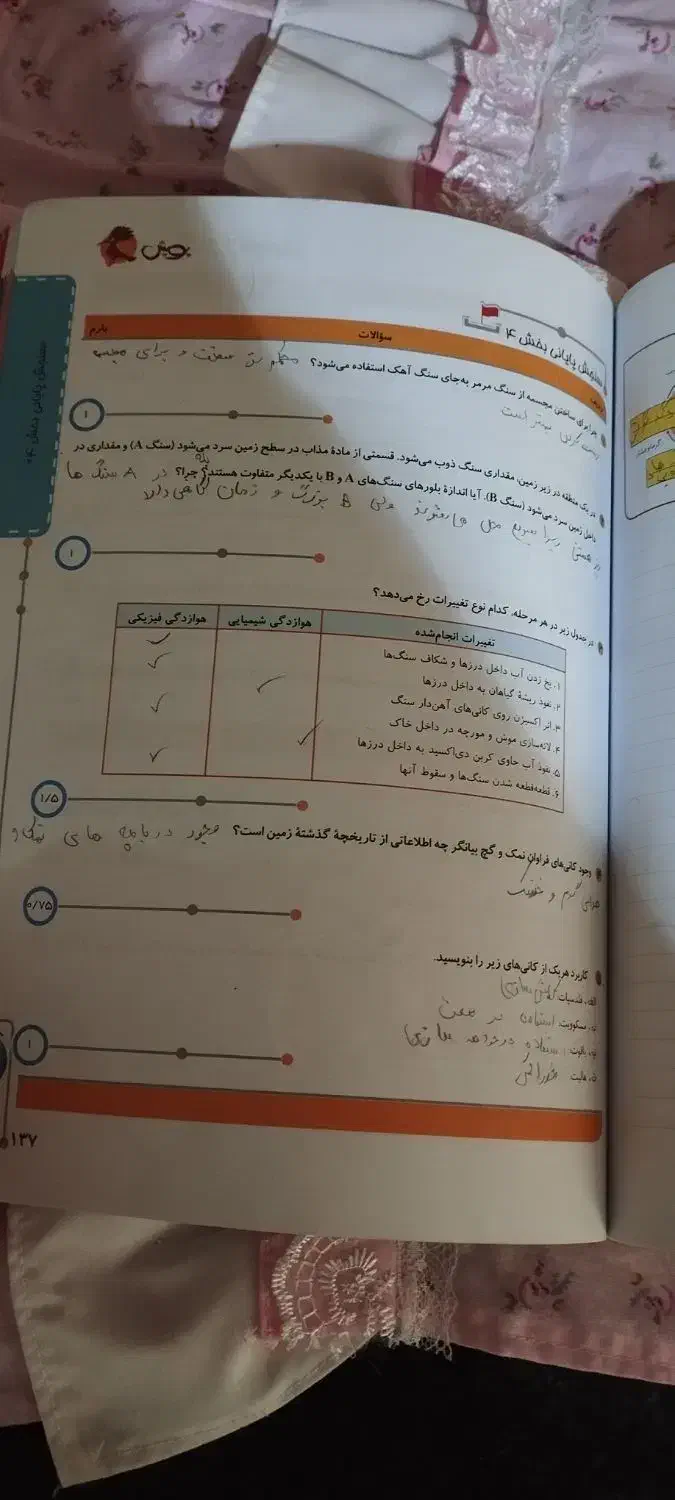 پویش
سنجش پایانی بخش ۴
سنجش پایانی بخش ۴
ردیف
سؤالات
بارم
چرا برای ساختن مجسمه از سنگ مرمر به‌جای سنگ آهک استفاده می‌شود؟ محکم تر سفت و برای مجسمه
درست کردن بهتر است
۱
در یک منطقه در زیر زمین، مقداری سنگ ذوب می‌شود. قسمتی از مادهٔ مذاب در سطح زمین سرد می‌شود (سنگ A) و مقداری در
داخل زمین سرد می‌شود (سنگ B). آیا اندازهٔ بلورهای سنگ‌های A و B با یکدیگر متفاوت هستند؟ چرا؟ بله در A سنگ ها
زیرا سریع ولی B بزرگ و زمان کافی دارد
۱
در جدول زیر در هر مرحله، کدام نوع تغییرات رخ می‌دهد؟
تغییرات انجام‌شده
هوازدگی شیمیایی
هوازدگی فیزیکی
۱. یخ زدن آب داخل درزها و شکاف سنگ‌ها ✓
۲. نفوذ ریشهٔ گیاهان به داخل درزها ✓
۳. اثر اکسیژن روی کانی‌های آهن‌دار سنگ ✓
۴. لانه‌سازی موش و مورچه در داخل خاک ✓
۵. نفوذ آب حاوی کربن دی‌اکسید به داخل درزها ✓
۶. قطعه‌قطعه شدن سنگ‌ها و سقوط آنها ✓
۱/۵
وجود کانی‌های فراوان نمک و گچ بیانگر چه اطلاعاتی از تاریخچهٔ گذشتهٔ زمین است؟ وجود دریاچه های نمک و
هوای گرم و خشک
۰/۷۵
کاربرد هریک از کانی‌های زیر را بنویسید.
الف. فلدسپات:
ب. مسکوویت: استفاده در صنعت
پ. یاقوت: استفاده در جواهر سازی
ت. هالیت خوراکی
۱
۱۳۷